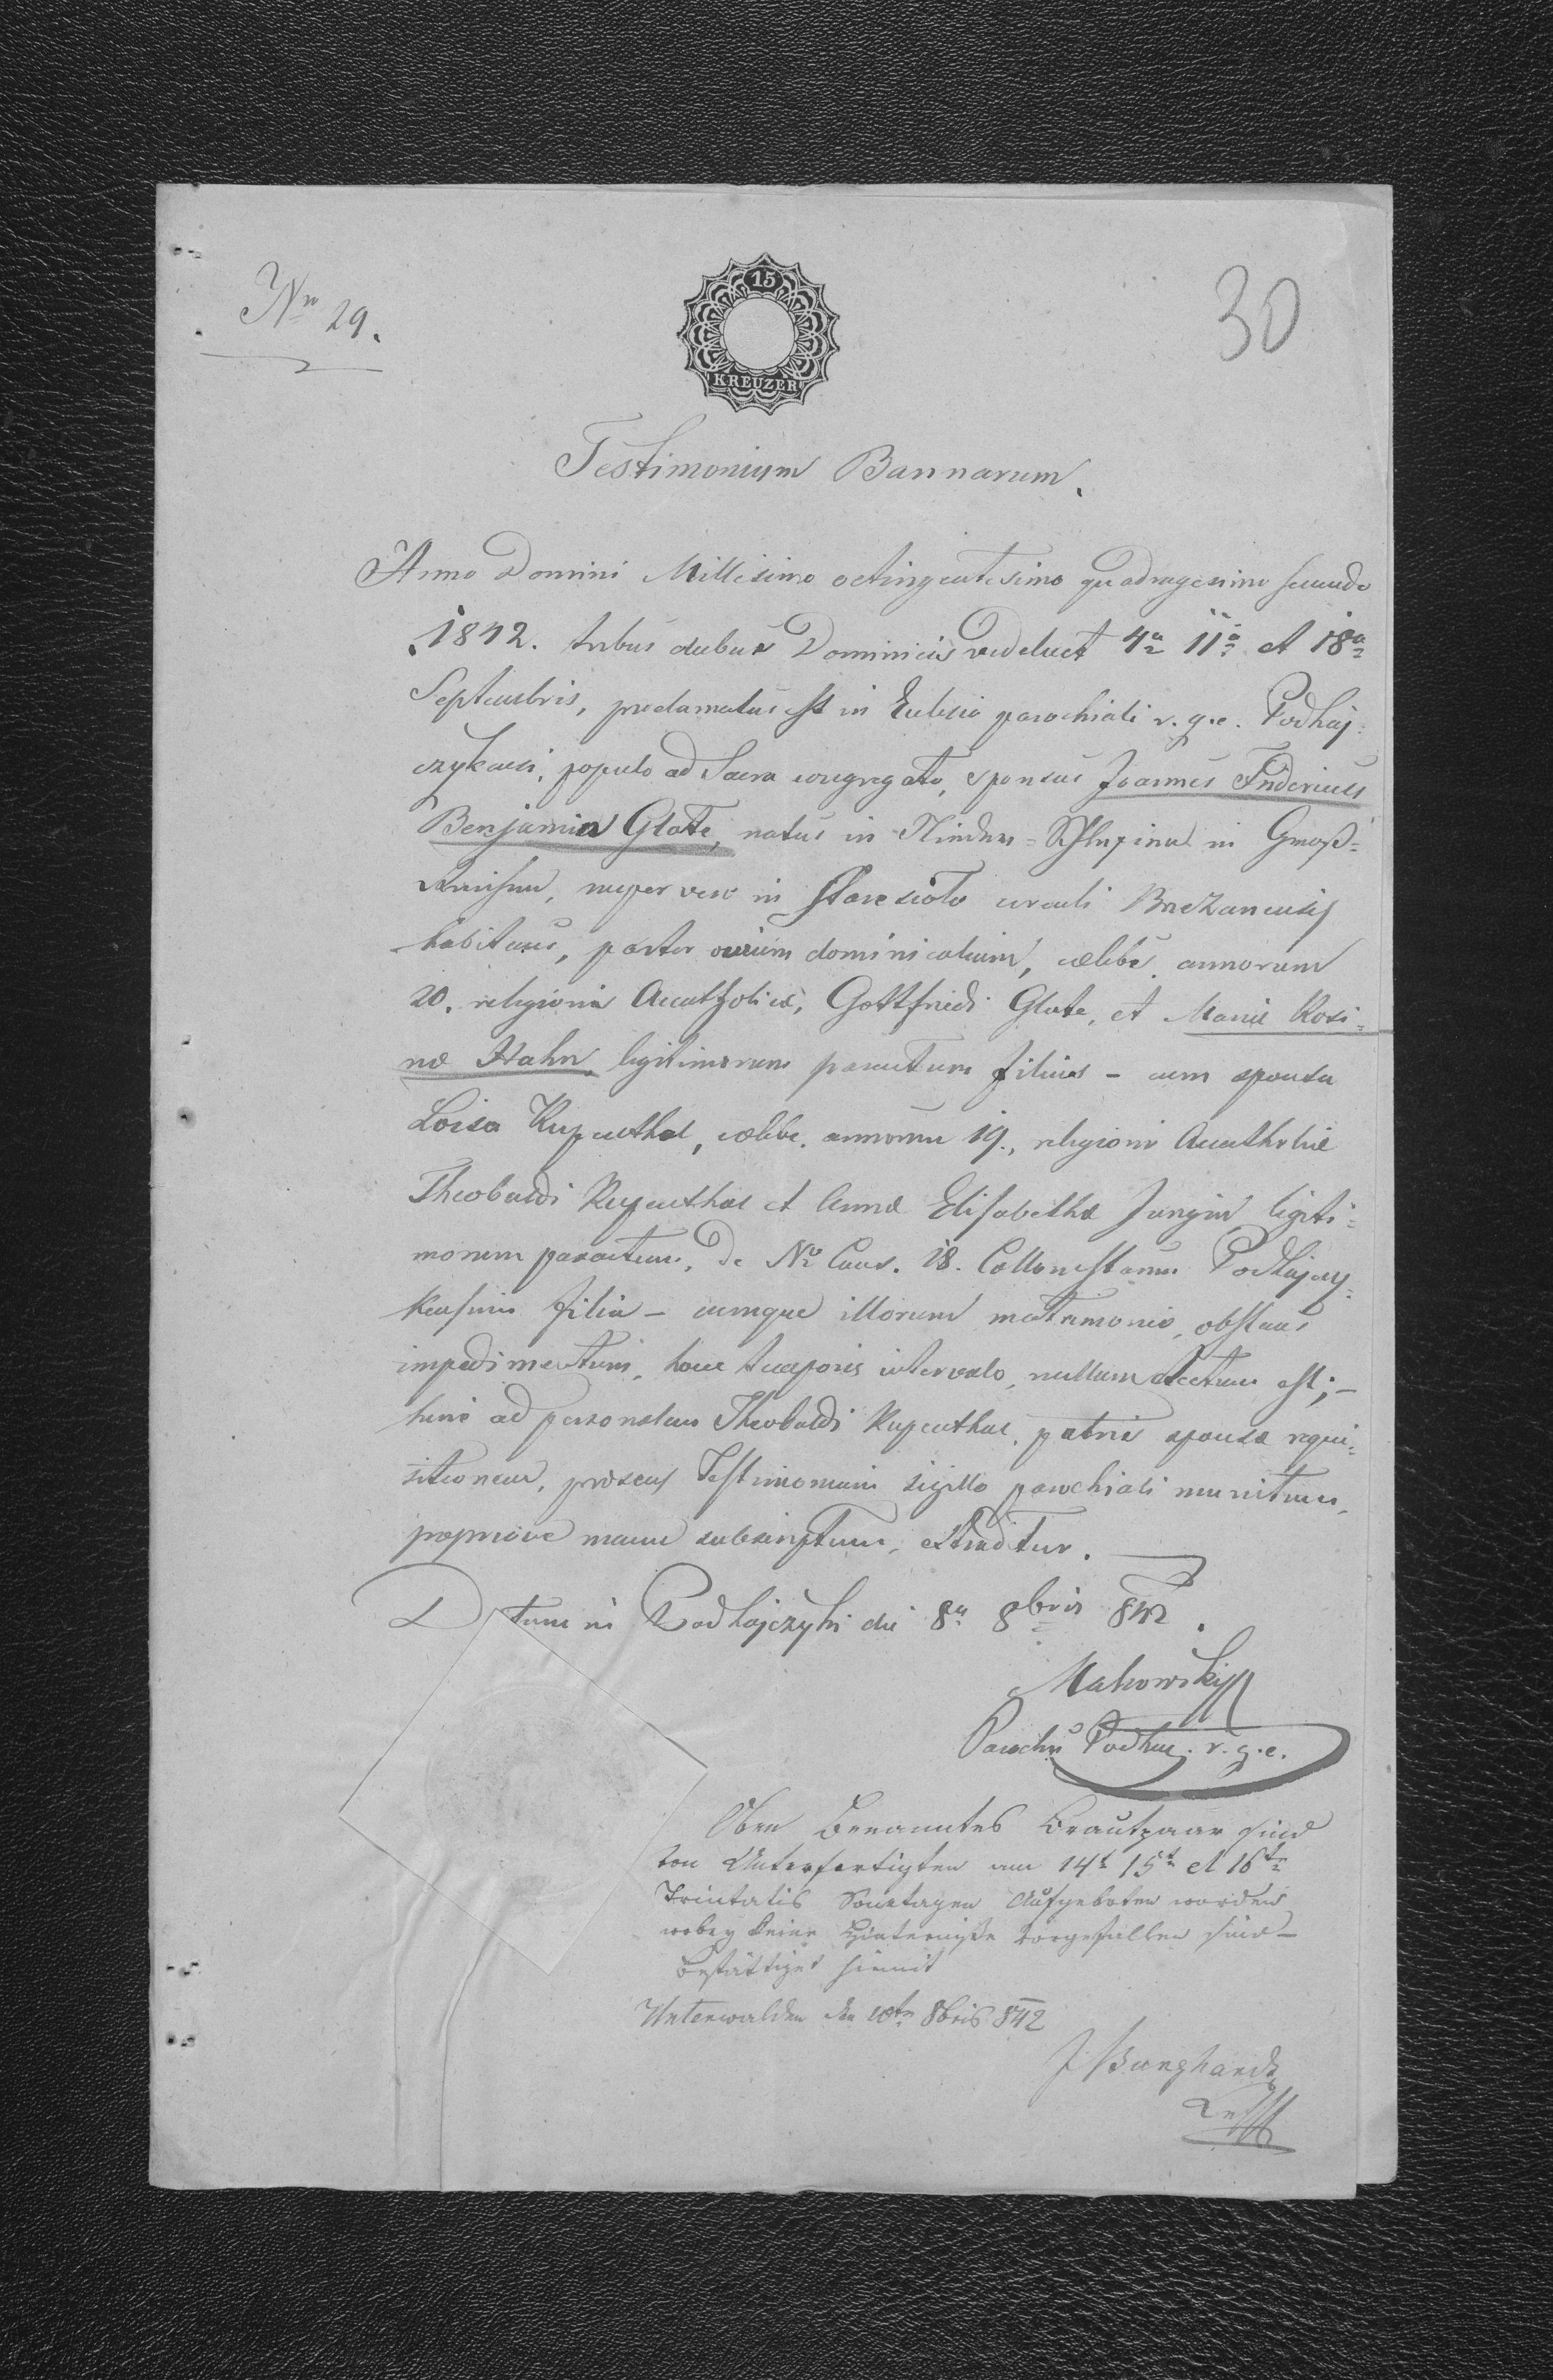 Nro 29.
30
15
KREUZER
Testimonium Bannarum.
Anno Domini Millesimo octingentesimo quadragesimo secundo
1842. tribus diebus Dominicis videlicet 4a 11a et 18a
Septembris, proclamatus est in Eclesia parochiali r. g. c. Podhaj=
czykensi, populo ad Sacra congregato, sponsus Joannes Fridericus
Benjamin Glatz, natus in Nieder= in Groß=
nuper vero in Staresioło circuli Brzezanensis
habitans, pastor ovium dominicalium, cælebs, annorum
20. religionis Acatholicæ, Gottfriedi Glatz, et Mariæ Rosi=
næ Hahn legitimorum parentum filius – cum sponsa
Loisa Rupenthal, cælebe, annorum 19., religionis Acatholicæ
Theobaldi Rupenthal et Annæ Elisabethæ Jungin legiti=
morum parentum, de Nro Cons. 18. Podhajczy=
filia – cumque illorum matrimonio, obstans
impedimentum, hoce temporis intervalo, nullum detectum est; –
hinc ad personalem Theobaldi Rupenthal, patris sponsæ requi=
sitionem, præsens Testimonium sigillo parochiali munitum,
propriave manu subscriptum, extraditur.
Datum in Podhajczyki die 8a 8bris 842.
Makowski
Parochus Podhaj. r. g. c.
Oben Benanntes Brautpaar sind
von Unterfertigten am 14t 15t et 16te
Trinitatis Sonntagen Aufgeboten worden
wobey keine Hinterniße vorgefallen sind –
bestättiget hiemit
Unterwalden den 8bris 842
J Burghardt